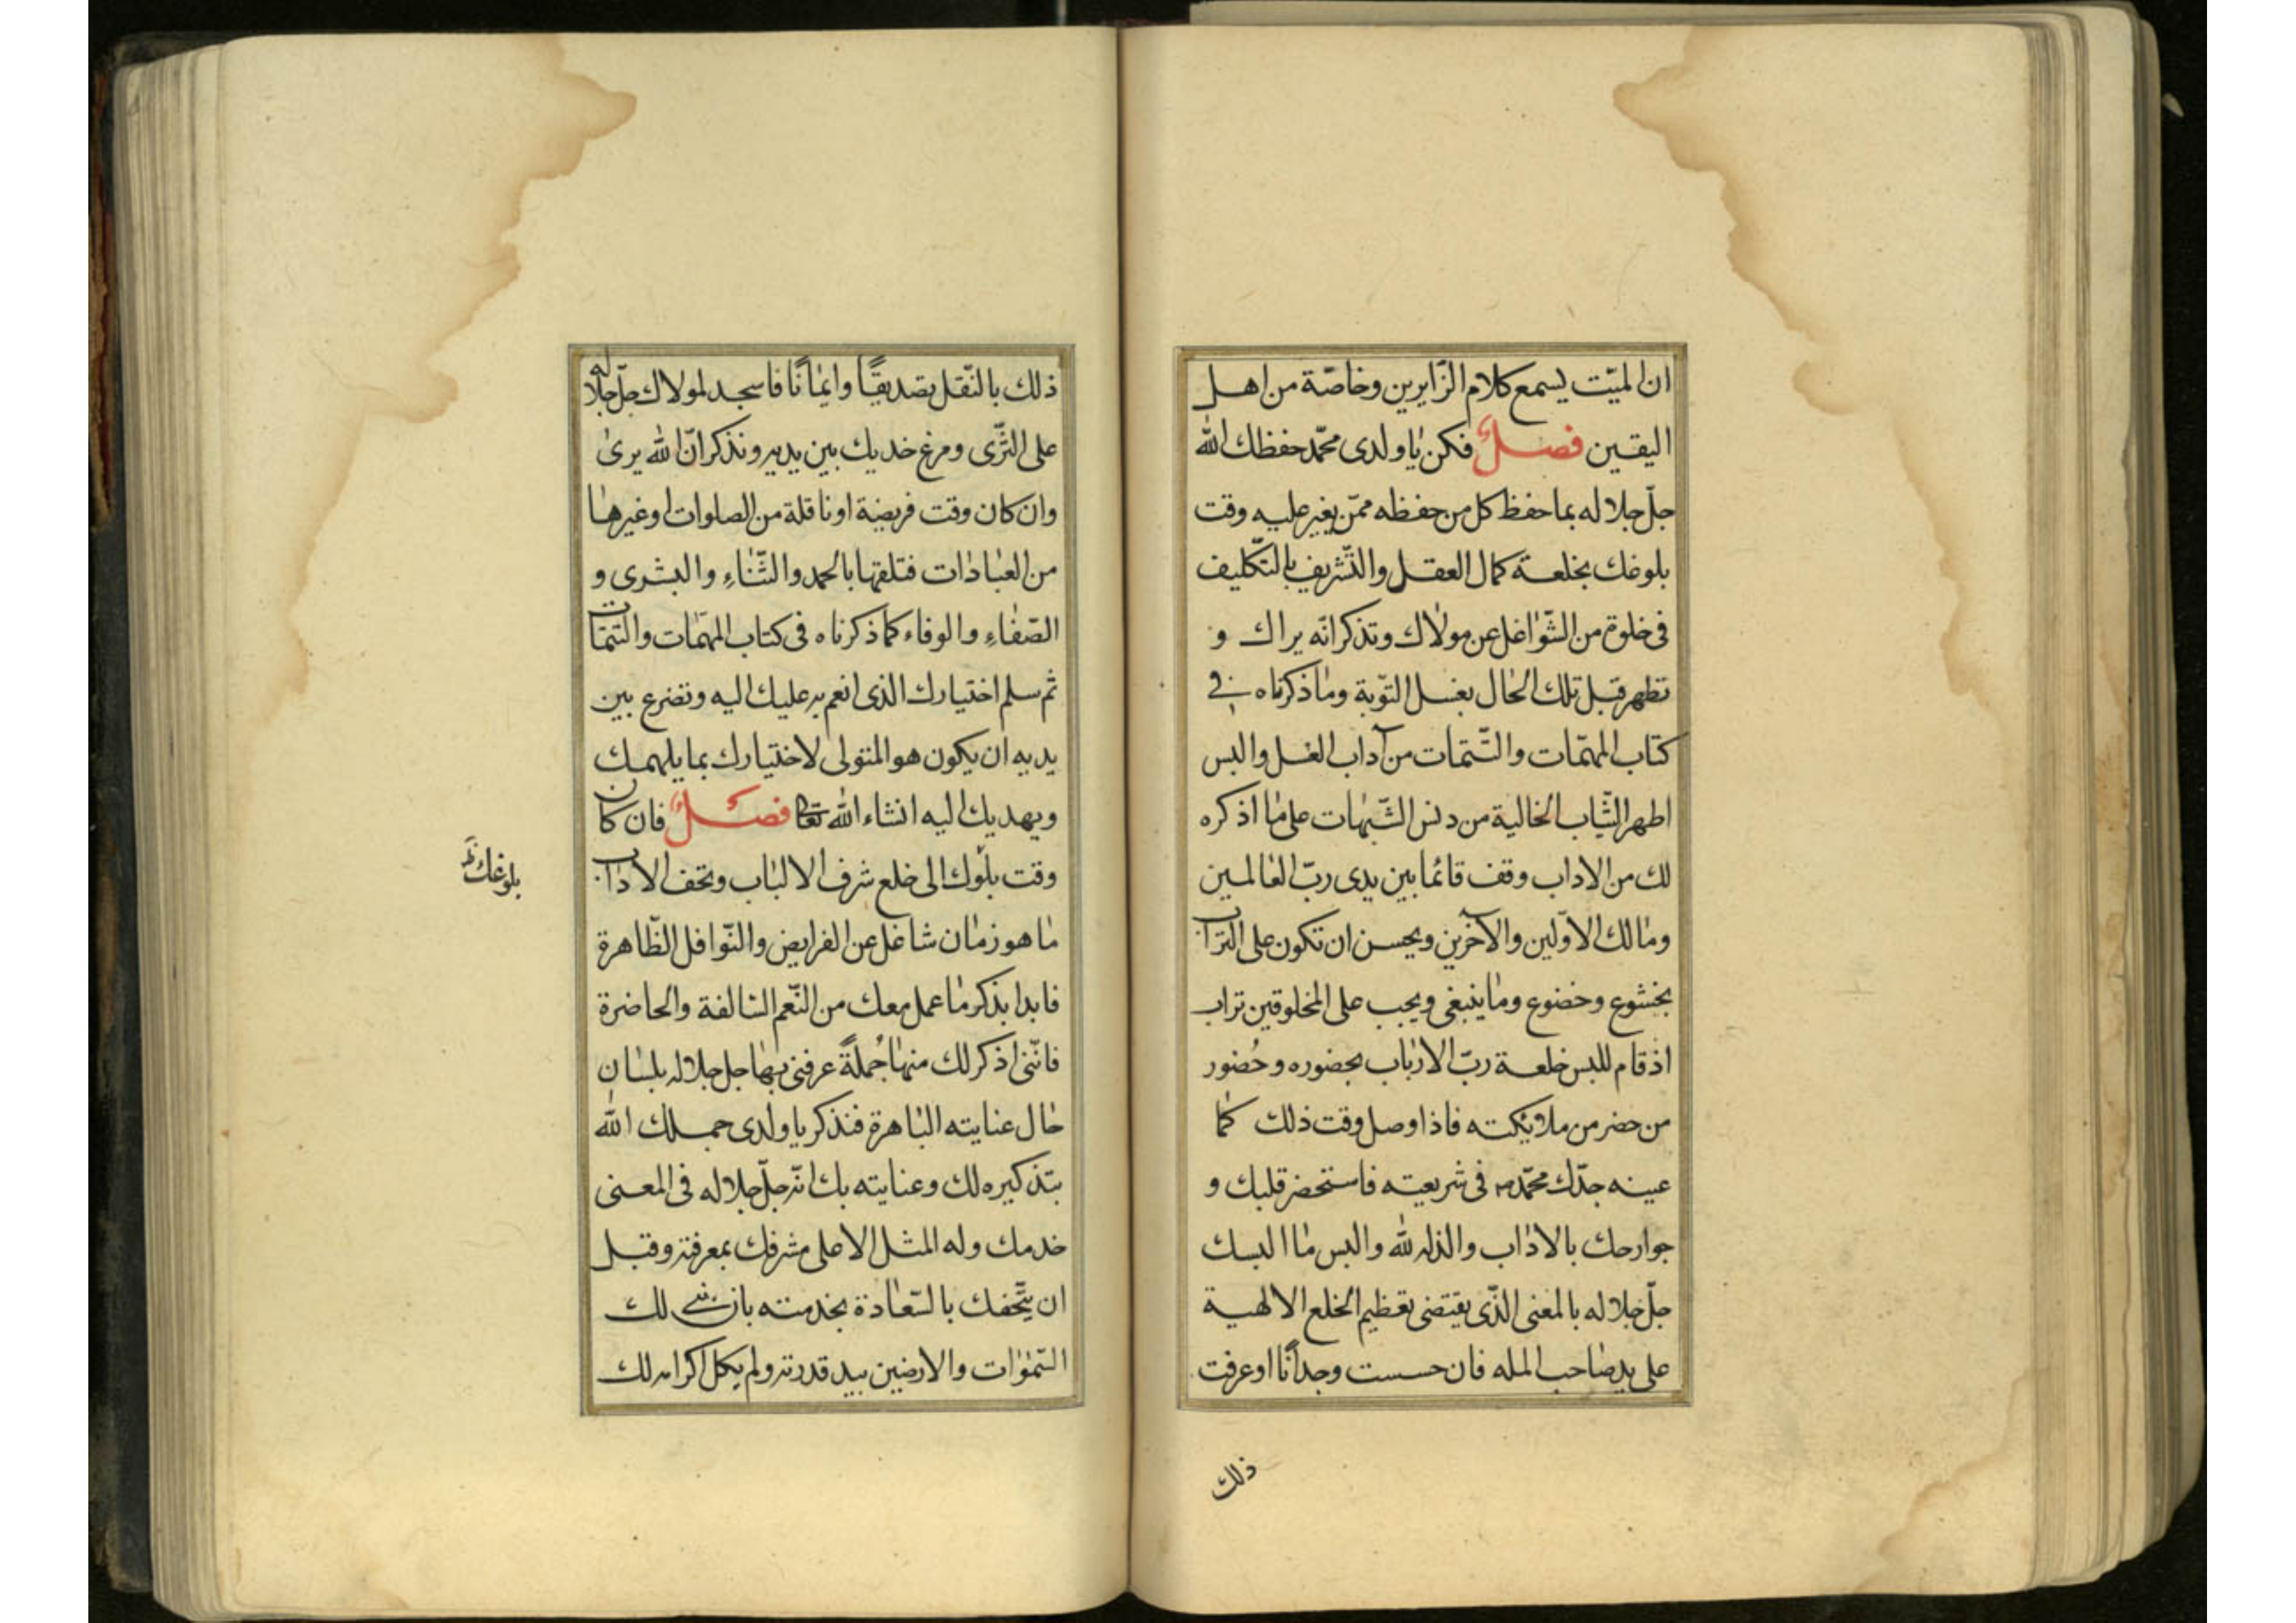 ان الميّت يسمع كلام الزّايرين وخاصّة من اهل
اليقين فصلٌ فكن يا ولدى محمّد حفظك الله
جلّ جلاله بما حفظ كل من حفظه ممّن يغير عليه وقت
بلوغك بخلعة كمال العقل والتّشريف بالتّكليف
فى خلوة من الشّواغل عن مولاك وتذكر انّه يراك و
تطهر قبل تلك الحال بغسل التّوبة وما ذكرناه فى
كتاب المهمّات والتّتمّات من آداب الغسل والبس
اطهر الثّياب الخالية من دنس الشّبهات على ما اذكره
لك من الاداب وقف قائما بين يدى ربّ العالمين
ومالك الاوّلين والآخرين ويحسن ان تكون على التراب
بخشوع وخضوع وما ينبغى ويجب على المخلوقين تراب
اذ قام للبس خلعة ربّ الارباب بحضوره وحُضور
من حضر من ملائكته فاذا وصل وقت ذلك كما
عينه جدّك محمّد ص فى شريعته فاستحضر قلبك و
جوارحك بالاداب والذله لله والبس ما البسك
جلّ جلاله بالمعنى الذّى يقتضى تعظيم الخلع الالهية
على يد صاحب المله فان حسست وجدانًا او عرفت
ذلك
ذلك بالنّقل تصديقًا وايمانًا فاسجد لمولاك جلّ جلاله
على الثّرى ومرغ خديك بين يديه وتذكر انّ الله يرى
وان كان وقت فريضة او نافلة من الصلوات او غيرها
من العبادات فتلقها بالحمد والثّناءِ والبشرى و
الصّفاءِ والوفاء كما ذكرناه فى كتاب المهمّات والتتمّات
ثم سلم اختيارك الذى انعم به عليك اليه وتضرع بين
يديه ان يكون هو المتولى لاختيارك بما يلهمك
ويهديك اليه انشاء الله تعا فصلٌ فان كان
وقت بلوك الى خلع شرف الالباب وتحف الاداب
بلوغك ظ
ما هو زمان شاغل عن الفرايض والنّوافل الظّاهرة
فابدا بذكر ما عمل معك من النّعم السّالفة والحاضرة
فانّنى اذكر لك منها جُملةً عرفنى بها جل جلاله بلسان
حال عنايته الباهرة فتذكر يا ولدى جملك الله
بتذكيره لك وعنايته بك انّه جلّ جلاله فى المعنى
خدمك وله المثل الاعلى مشرفك بمعرفته وقبل
ان يتّحفك بالسّعادة بخدمته بان بنى لك
السّموات والارضين بيد قدرته ولم يكل اكرامه لك